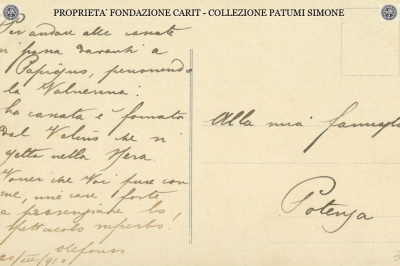 PROPRIETA' FONDAZIONE CARIT - COLLEZIONE PATUMI SIMONE
Per andare alle cascate
si passa davanti a
Papigno, percorrendo
la Valnerina:
La cascata è formata
dal Velino che si
getta nella Nera.
Vorrei che Voi pure con
me, mie care, foste
a passeggiare lo
spettacolo superbo.
Alfonso
Alla mia famiglia
Potenza